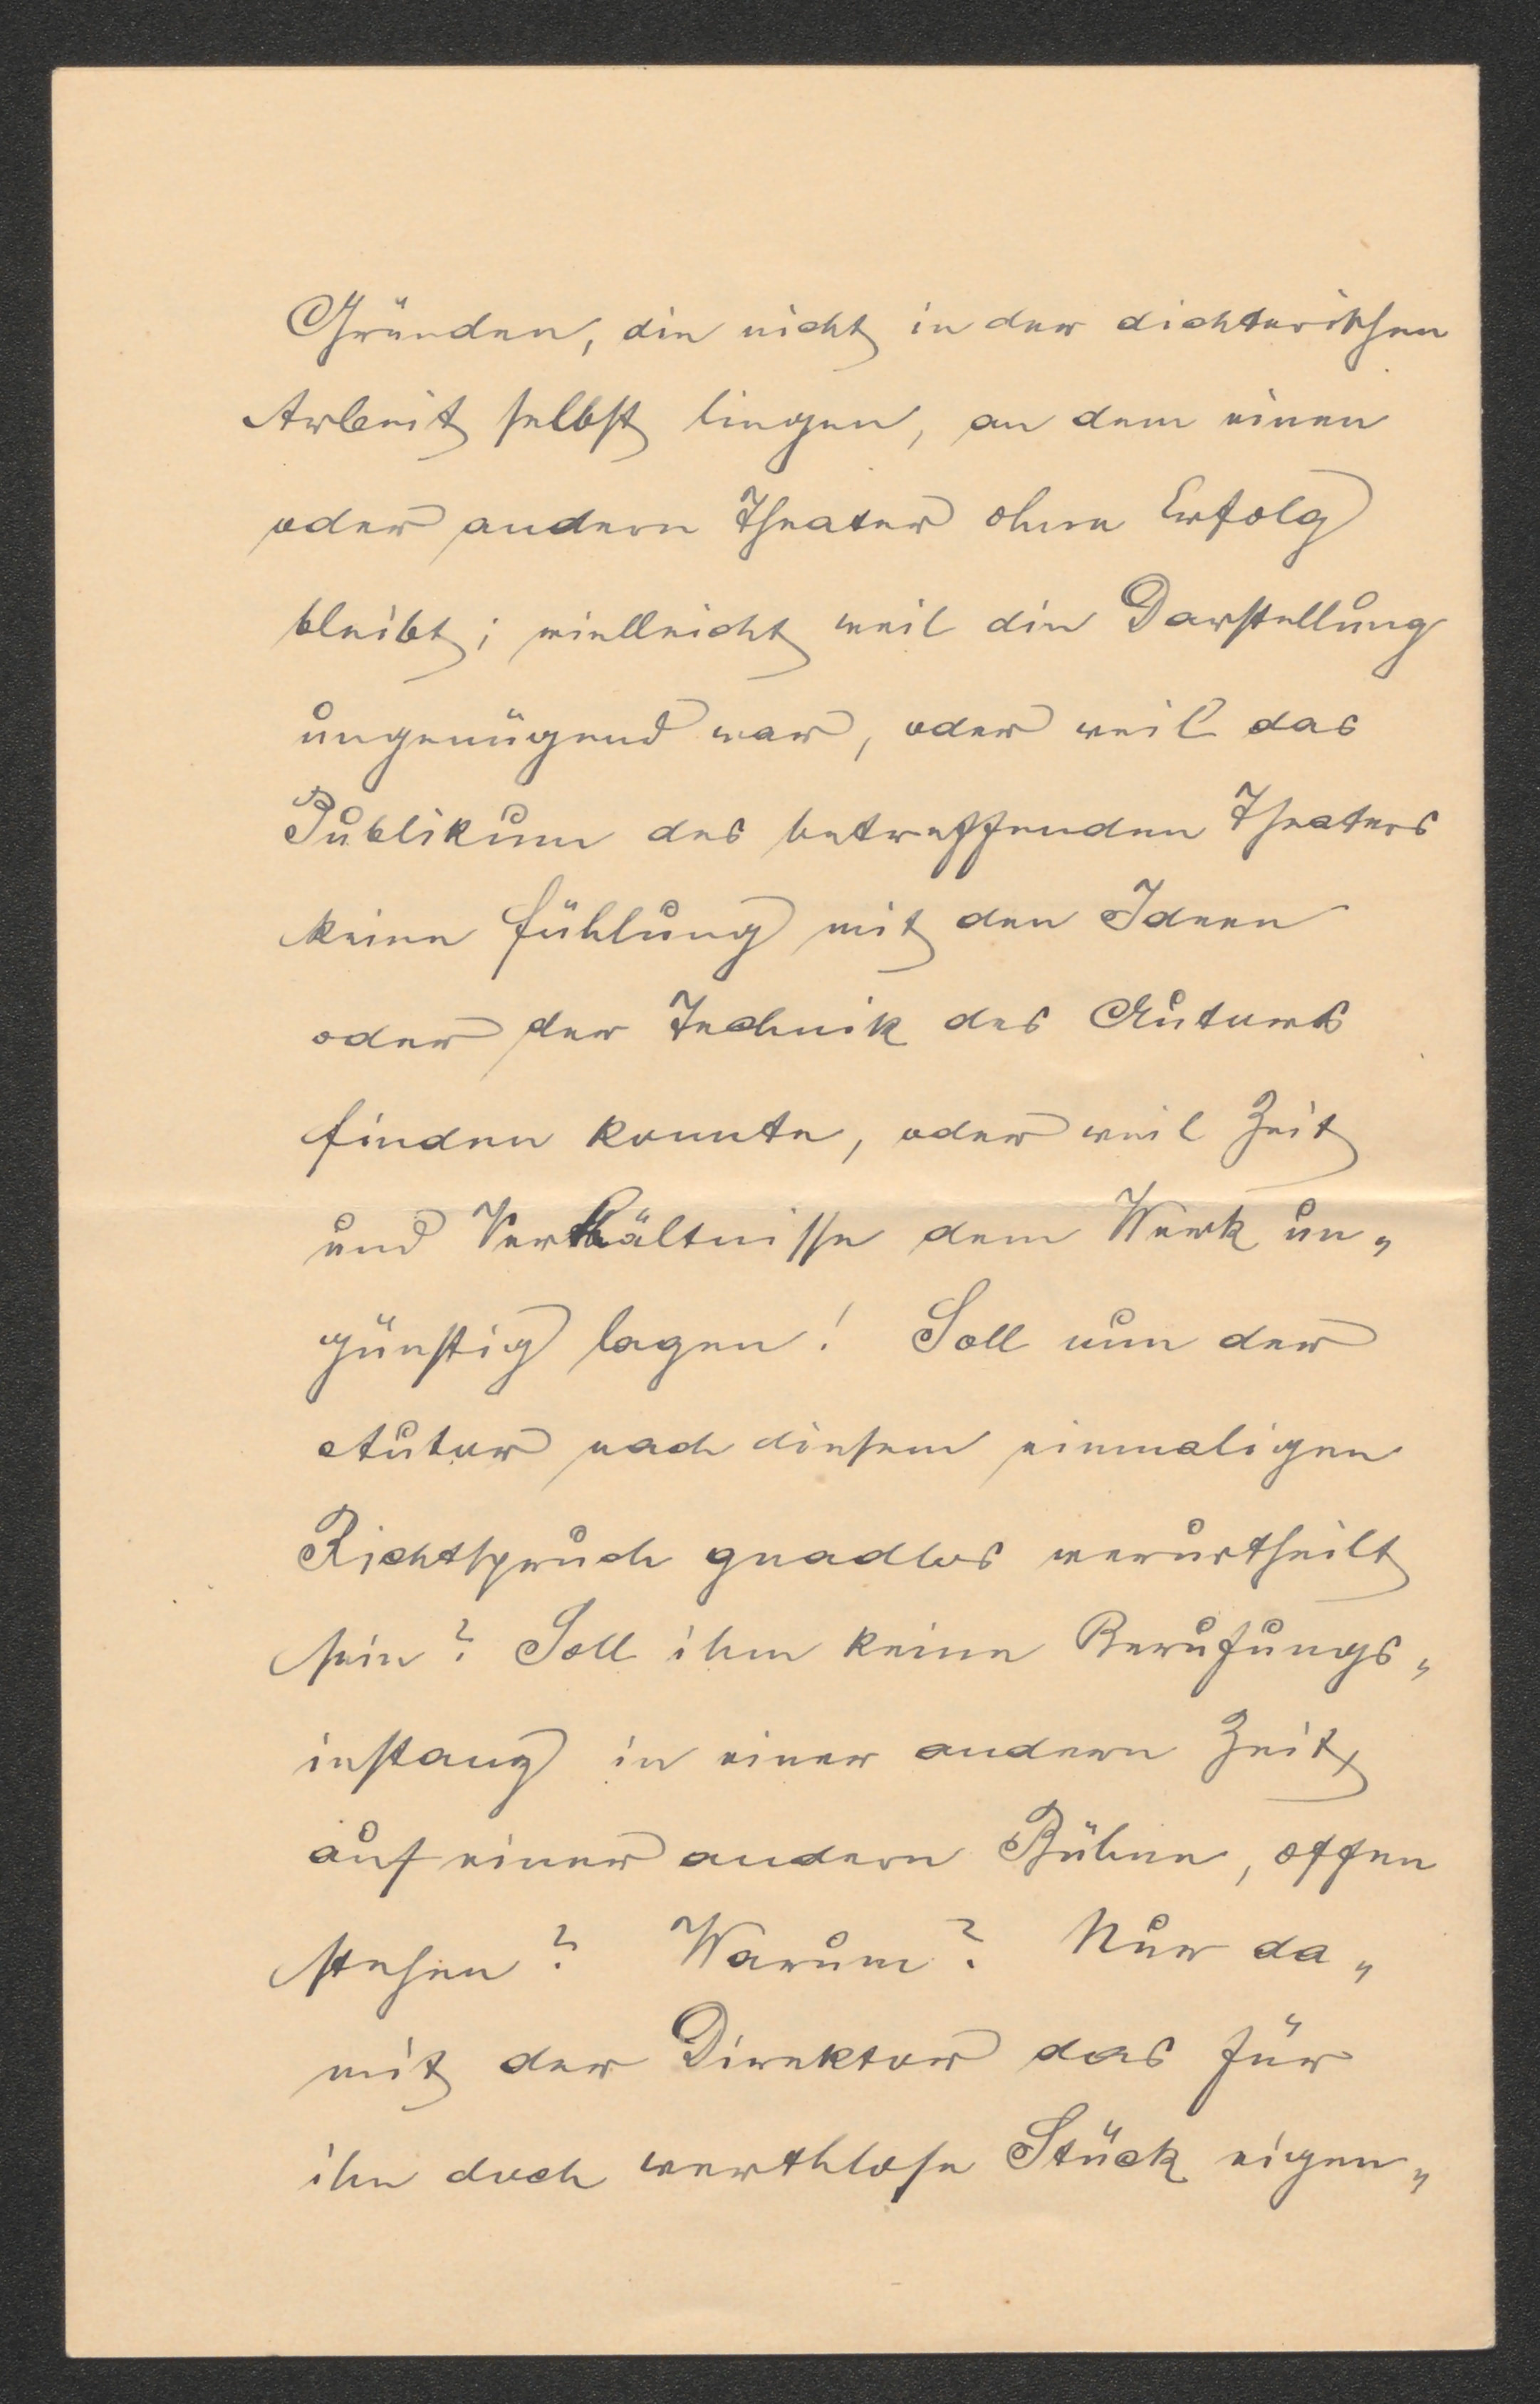 Gründen, die nicht in der dichterischen
Arbeit selbst liegen, an dem einen
oder andern Theater ohne Erfolg
bleibt; vielleicht weil die Darstellung
ungenügend war, oder weil das
Publikum des betreffenden Theaters
keine Fühlung mit den Ideen
oder der Technik des Autors
finden konnte, oder weil Zeit
und Verhältnisse dem Werk un„
günstig lagen! Soll nun der
Autor nach diesem einmaligen
Richtspruch gnadlos verurtheilt
sein? Soll ihm keine Berufungs„
instanz in einer andern Zeit,
auf einer andern Bühne, offen
stehen? Warum? Nur da„
mit der Direktor das für
ihn doch werthlose Stück eigen„